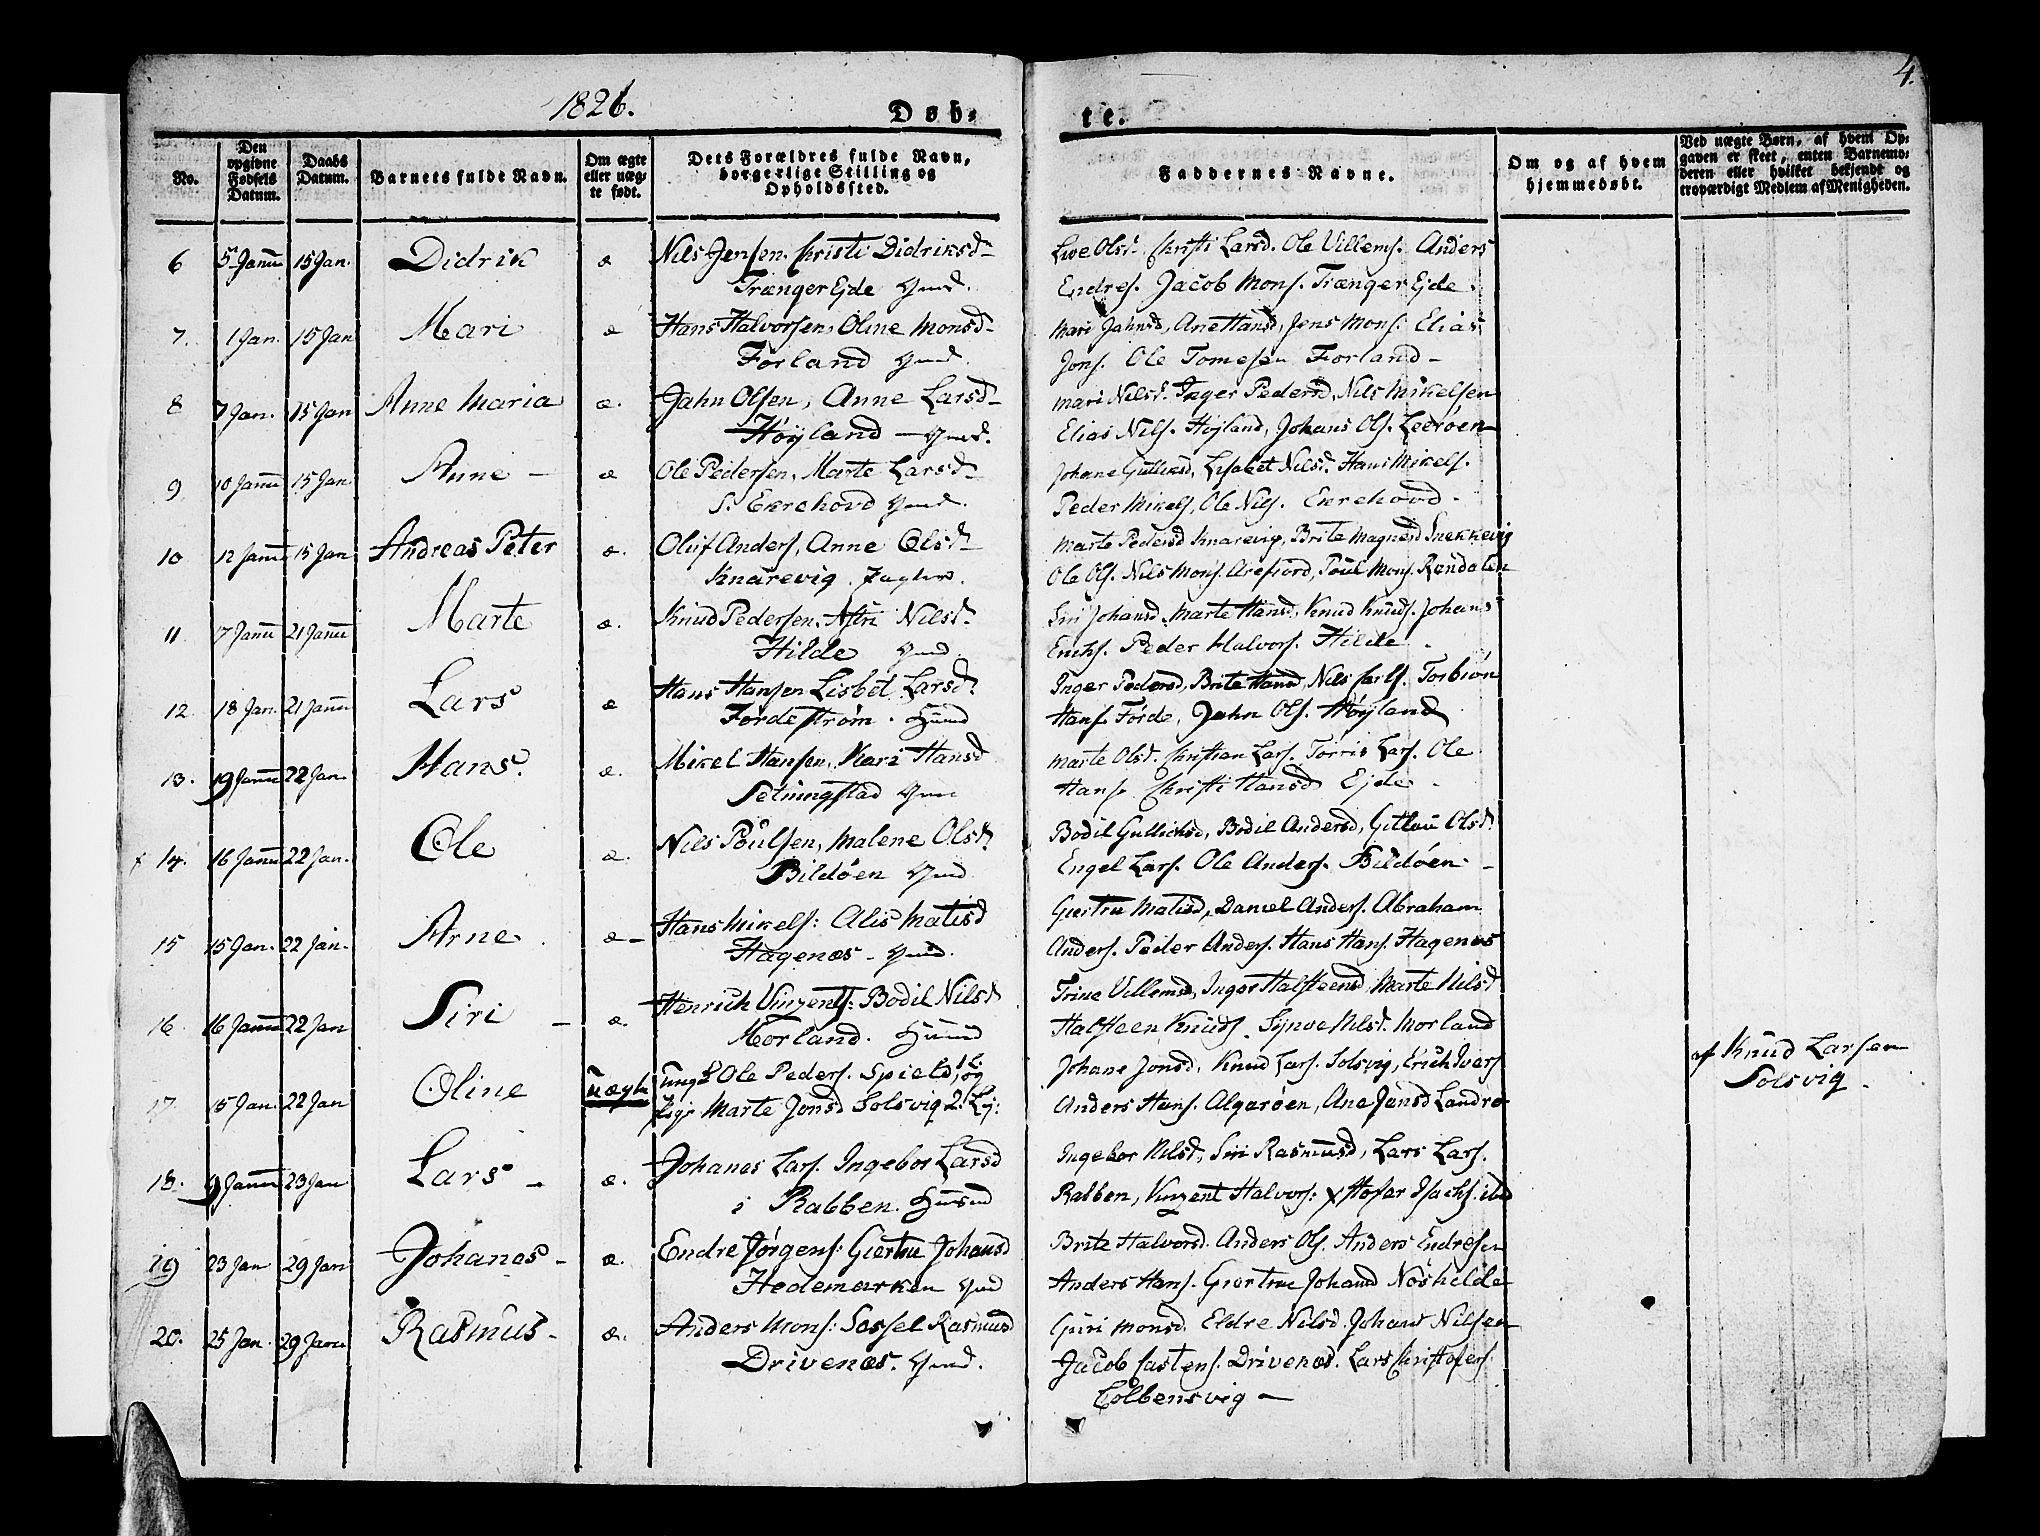 1826.
Døb-
te.
4.
No.
Den opgivne Fødsels Datum.
Daabs Datum.
Barnets fulde Navn.
Om ægte eller uægte født.
Dets Forældres fulde Navn, borgerlige Stilling og Opholdssted.
Faddernes Navne.
Om og af hvem hjemmedøbt.
Ved uægte Børn, af hvem Opgaven er skeet, enten Barnemoderen eller hvilket bekjendt og troværdigt Medlem af Menigheden.
6 5 Janu 15 Jan. Didrik æ Nils Jensen. Christi Didriksd
Trænger Ejde
Olsd. Christi Larsd. Ole Villems. Anders
Endres. Jacob Mons. Trænger Ejde
7. 1 Jan. 15 Jan Mari æ Hans Halvorsen, Oline Monsd
Forland
Mari Jahnsd, Ane Hansd, Jens Mons. Elias
Jons. Ole Tomesen Forland
8 7 Jan. 15 Jan Anne Maria æ. Jahn Olsen, Anne Larsd
Høyland
Mari Nilsd. Inger Pedersd, Nils Mikelsen
Elias Nils. Høyland, Johans Ols. Leerøen
9 10 Janu 15 Jan Anne æ Ole Pedersen, Marte Larsd
S. Ekrehovd
Johane Gulliksd, Lisabet Nilsd. Hans Mikels.
Peder Mikels. Ole Nils. Ekrehovd
10 12 Janu 15 Jan Andreas Peter æ. Oluf Anders, Anne Olsd
Knarevig.
Marte Pedersd Knarevig, Brite Magnesd Snekkevig
Ole Ols. Nils Mons. Arefiord, Poul Mons.
11. 17 Janu 21 Janu Marte æ. Knud Pedersen. Astri Nilsd.
Hilde
Siri Johansd. Marte Hansd, Knud Knuds. Johans
Erichs. Peder Halvors. Hilde
12. 18 Jan. 21 Janu Lars æ Hans Hansen Lisbet Larsd.
Førdestrøm. Huusmd
Inger Pedersd, Brite Hansd, Nils Carls. Torbiøn
Hans. Førde, Jahn Ols. Høyland
13. 19 Janu 22 Jan. Hans. æ. Mikel Hansen, Kari Hansd
Setningstad
Marte Olsd. Christian Lars. Torris Lars. Ole
Hans. Christi Hansd Ejde
14. 16 Janu 22 Jan. Ole æ. Nils Poulsen, Malene Olsd
Bildøen
Bodil Gulliksd, Bodil Andersd, Olsd.
Engel Lars. Ole Anders. Bildøen
15 15 Jan. 22 Jan. Arne æ Hans Mikels: Alis Matisd
Hagenæs
Giertru Matisd, Daniel Anders. Abraham
Anders. Peder Anders. Hans Hans. Hagenæs
16. 16 Janu 22 Jan Siri æ. Henrich Vinzents: Bodil Nilsd
Morland. Huusmd
Trine Villemsd, Inger Halsteensd, Marte Nilsd
Halsteen Knuds. Synve Nilsd. Morland
17. 15 Jan. 22 Jan Oline uægte Ungk. Ole Peders. Spield, og
Marte Jonsd Solsvig 2.
Johane Jonsd, Knud Lars. Solsvig, Erich Ivers
Anders Hans. Algarøen, Ane Jansd Landro
af Knud Larsen
Solsvig.
18. 9 Janu 23 Jan Lars æ. Johanes Lars. Ingebor Larsd
i Rabben. Huusmd
Ingebor Nilsd, Siri Rasmusd, Lars Lars.
Rabben, Vinzent Halvors: Isachs. ibid
19 23 Jan 29 Jan Johanes æ. Endre Jørgens: Giertru Johansd
Hedemarken
Brite Halvorsd. Anders Ols. Anders Endresen
Anders Hans. Giertrue Johansd
20. 25 Jan. 29 Janu Rasmus æ. Anders Mons: Sessel Rasmusd
Drivenæs.
Guri Monsd. Eldre Nilsd. Johans Nilsen
Jacob Castens. Drivenæs. Lars Christofers.
Colbensvig